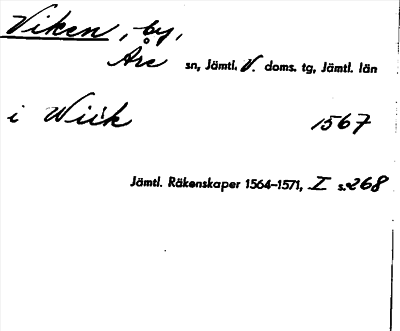 Viken, by,
Åre sn, Jämtl. V. doms. tg, Jämtl. län
i Wiik 1567
Jämtl. Räkenskaper 1564–1571, I s. 268